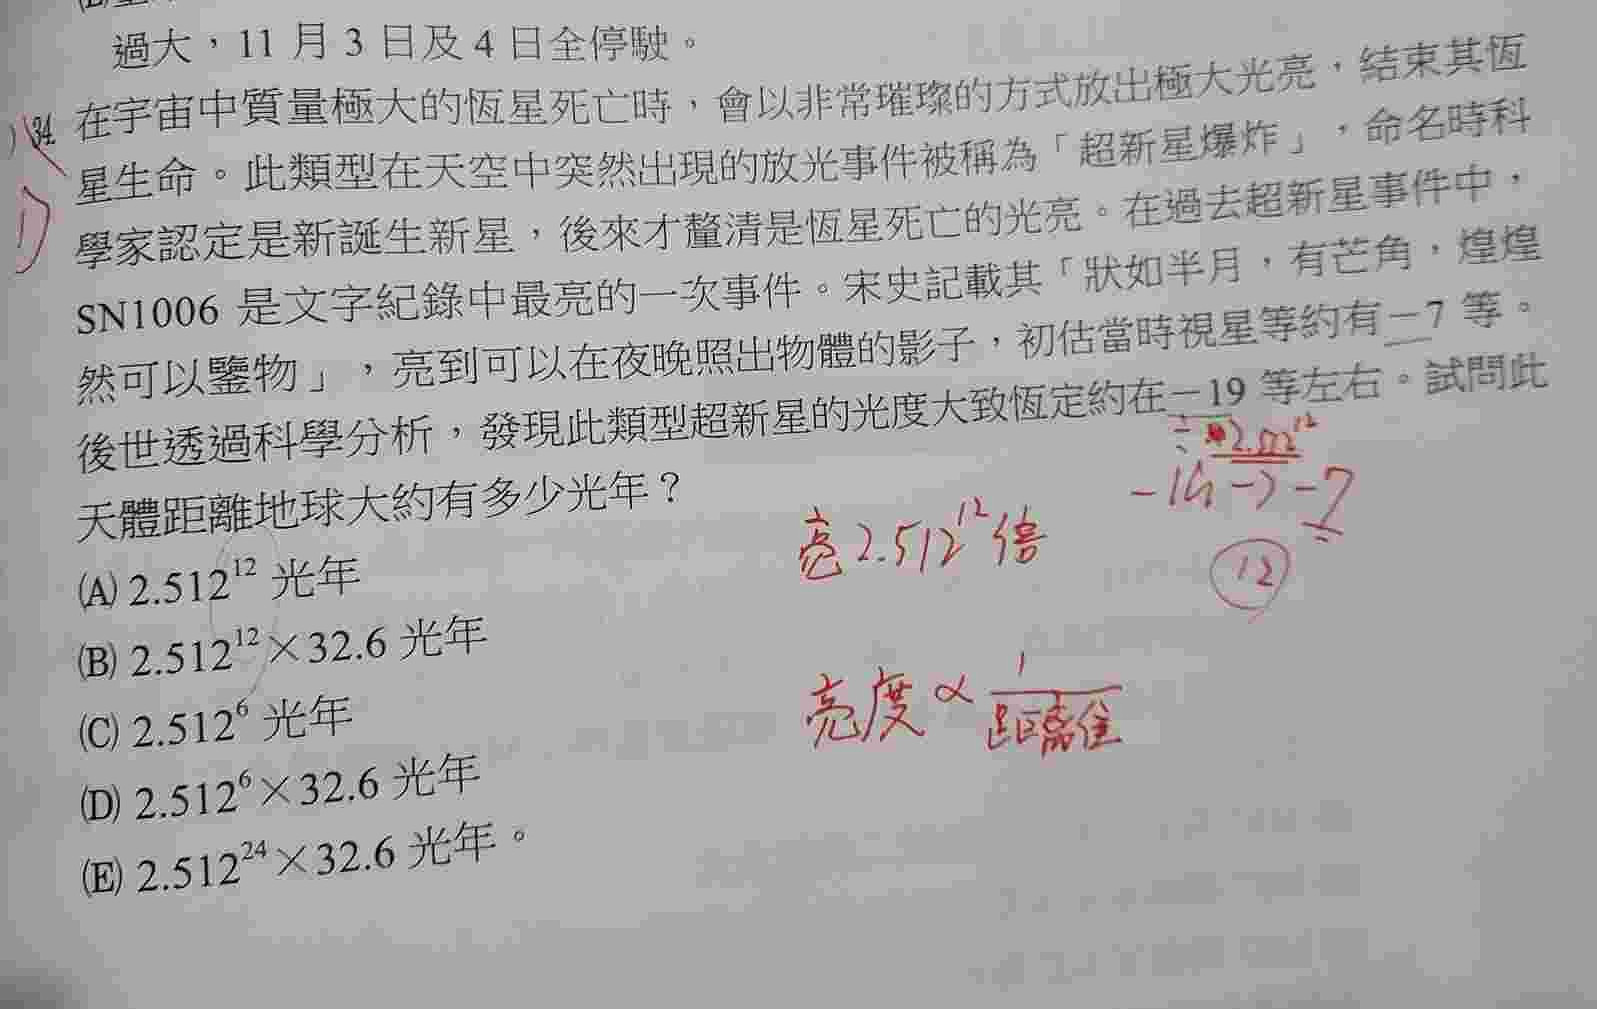 過大，11 月 3 日及 4 日全停駛。
34. 在宇宙中質量極大的恆星死亡時，會以非常璀璨的方式放出極大光亮，結束其恆
星生命。此類型在天空中突然出現的放光事件被稱為「超新星爆炸」，命名時科
學家認定是新誕生新星，後來才釐清是恆星死亡的光亮。在過去超新星事件中，
SN1006 是文字紀錄中最亮的一次事件。宋史記載其「狀如半月，有芒角，煌煌
然可以鑒物」，亮到可以在夜晚照出物體的影子，初估當時視星等約有－7 等。
後世透過科學分析，發現此類型超新星的光度大致恆定約在－19 等左右。試問此
天體距離地球大約有多少光年？
2.512¹²
-19 → -7
12
亮 2.512¹² 倍
(A) 2.512¹² 光年
(B) 2.512¹²×32.6 光年
亮度 ∝ 1/距離
(C) 2.512⁶ 光年
(D) 2.512⁶×32.6 光年
(E) 2.512²⁴×32.6 光年。